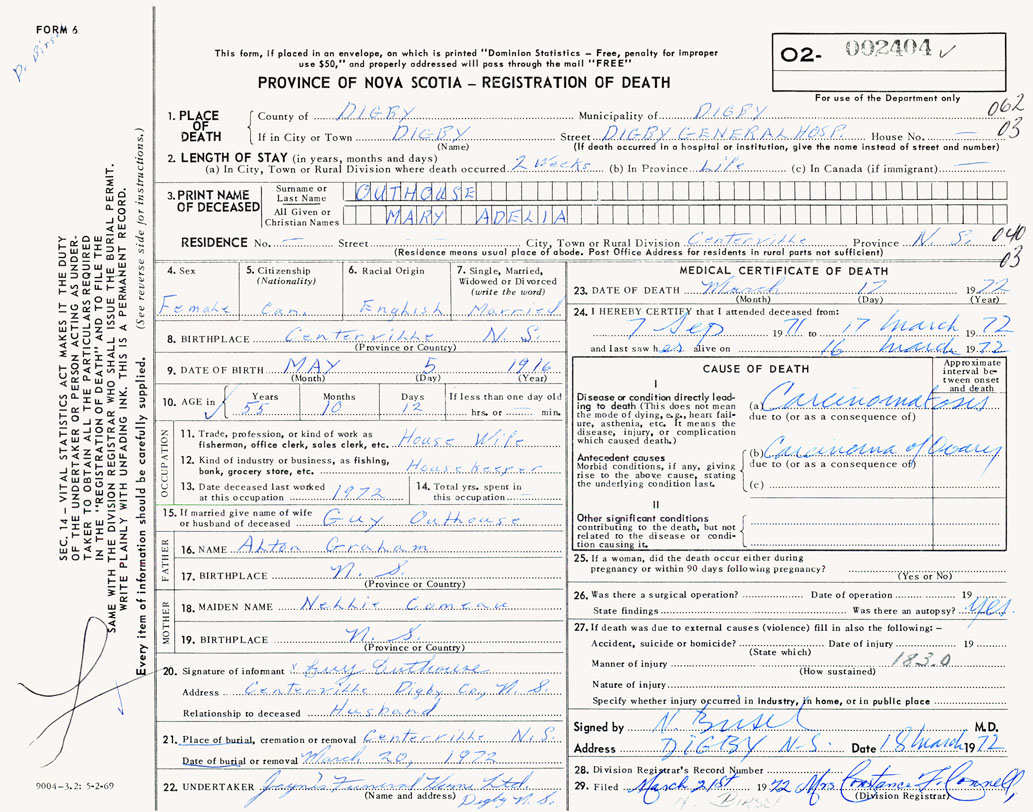 FORM 6
This form, if placed in an envelope, on which is printed "Dominion Statistics – Free, penalty for improper
use $50," and properly addressed will pass through the mail "FREE"
PROVINCE OF NOVA SCOTIA – REGISTRATION OF DEATH
02- 002404 ✓
For use of the Department only
062
03
1. PLACE OF DEATH
County of DIGBY Municipality of DIGBY
If in City or Town DIGBY Street DIGBY GENERAL HOSP. House No. —
(Name) (If death occurred in a hospital or institution, give the name instead of street and number)
2. LENGTH OF STAY (in years, months and days)
(a) In City, Town or Rural Division where death occurred 2 Weeks (b) In Province Life (c) In Canada (if immigrant) —
3. PRINT NAME OF DECEASED
Surname or Last Name OUTHOUSE
All Given or Christian Names MARY ADELIA
RESIDENCE No. — Street City, Town or Rural Division Centerville Province N. S.
040
03
(Residence means usual place of abode. Post Office Address for residents in rural parts not sufficient)
4. Sex Female
5. Citizenship (Nationality) Can.
6. Racial Origin English
7. Single, Married, Widowed or Divorced (write the word) Married
8. BIRTHPLACE Centerville N. S.
(Province or Country)
9. DATE OF BIRTH MAY 5 1916
(Month) (Day) (Year)
10. AGE in ✓ Years 55 Months 10 Days 12 If less than one day old hrs. or — min.
OCCUPATION
11. Trade, profession, or kind of work as fisherman, office clerk, sales clerk, etc. House Wife
12. Kind of industry or business, as fishing, bank, grocery store, etc. Housekeeper
13. Date deceased last worked at this occupation 1972
14. Total yrs. spent in this occupation —
15. If married give name of wife or husband of deceased Guy Outhouse
FATHER
16. NAME Alton Graham
17. BIRTHPLACE N. S.
(Province or Country)
MOTHER
18. MAIDEN NAME Nellie Comeau
19. BIRTHPLACE N. S.
(Province or Country)
20. Signature of informant x Guy Outhouse
Address Centerville Digby Co, N. S.
Relationship to deceased Husband
21. Place of burial, cremation or removal Centerville N. S.
Date of burial or removal March 20, 1972
22. UNDERTAKER Jayne's Funeral Home Ltd.
(Name and address) Digby N. S.
MEDICAL CERTIFICATE OF DEATH
23. DATE OF DEATH March 17 1972
(Month) (Day) (Year)
24. I HEREBY CERTIFY that I attended deceased from:
7 Sep 1971 to 17 March 1972
and last saw her alive on 16 March 1972
CAUSE OF DEATH
Approximate interval between onset and death
I
Disease or condition directly leading to death (This does not mean the mode of dying, e.g., heart failure, asthenia, etc. It means the disease, injury, or complication which caused death.)
(a) Carcinomatosis
due to (or as a consequence of)
Antecedent causes
Morbid conditions, if any, giving rise to the above cause, stating the underlying condition last.
(b) Carcinoma of Ovary
due to (or as a consequence of)
(c)
II
Other significant conditions
contributing to the death, but not related to the disease or condition causing it.
25. If a woman, did the death occur either during pregnancy or within 90 days following pregnancy?
(Yes or No)
26. Was there a surgical operation? Date of operation 19
State findings Was there an autopsy? yes.
27. If death was due to external causes (violence) fill in also the following: –
Accident, suicide or homicide? Date of injury 19
(State which)
Manner of injury 183.0
(How sustained)
Nature of injury
Specify whether injury occurred in industry, in home, or in public place
Signed by M.D.
Address DIGBY N.S. Date 18 March 1972
28. Division Registrar's Record Number
29. Filed March 21st 1972 Mrs Constance F. Connell,
(Division Registrar)
SEC. 14 – VITAL STATISTICS ACT MAKES IT THE DUTY
OF THE UNDERTAKER OR PERSON ACTING AS UNDER-
TAKER TO OBTAIN ALL THE PARTICULARS REQUIRED
IN THE "REGISTRATION OF DEATH" AND TO FILE THE
SAME WITH THE DIVISION REGISTRAR WHO SHALL ISSUE THE BURIAL PERMIT.
WRITE PLAINLY WITH UNFADING INK. THIS IS A PERMANENT RECORD.
Every item of information should be carefully supplied. (See reverse side for instructions.)
9004–3.2: 5-2-69